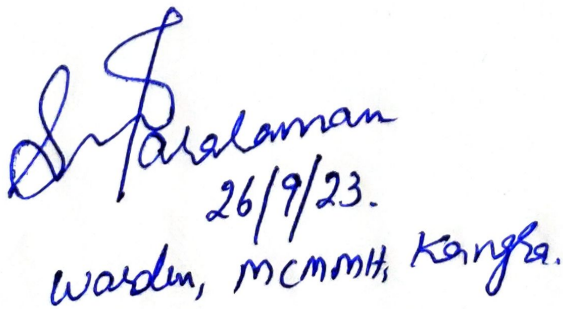 26/9/23.
Warden, MCMMH, Kangra.